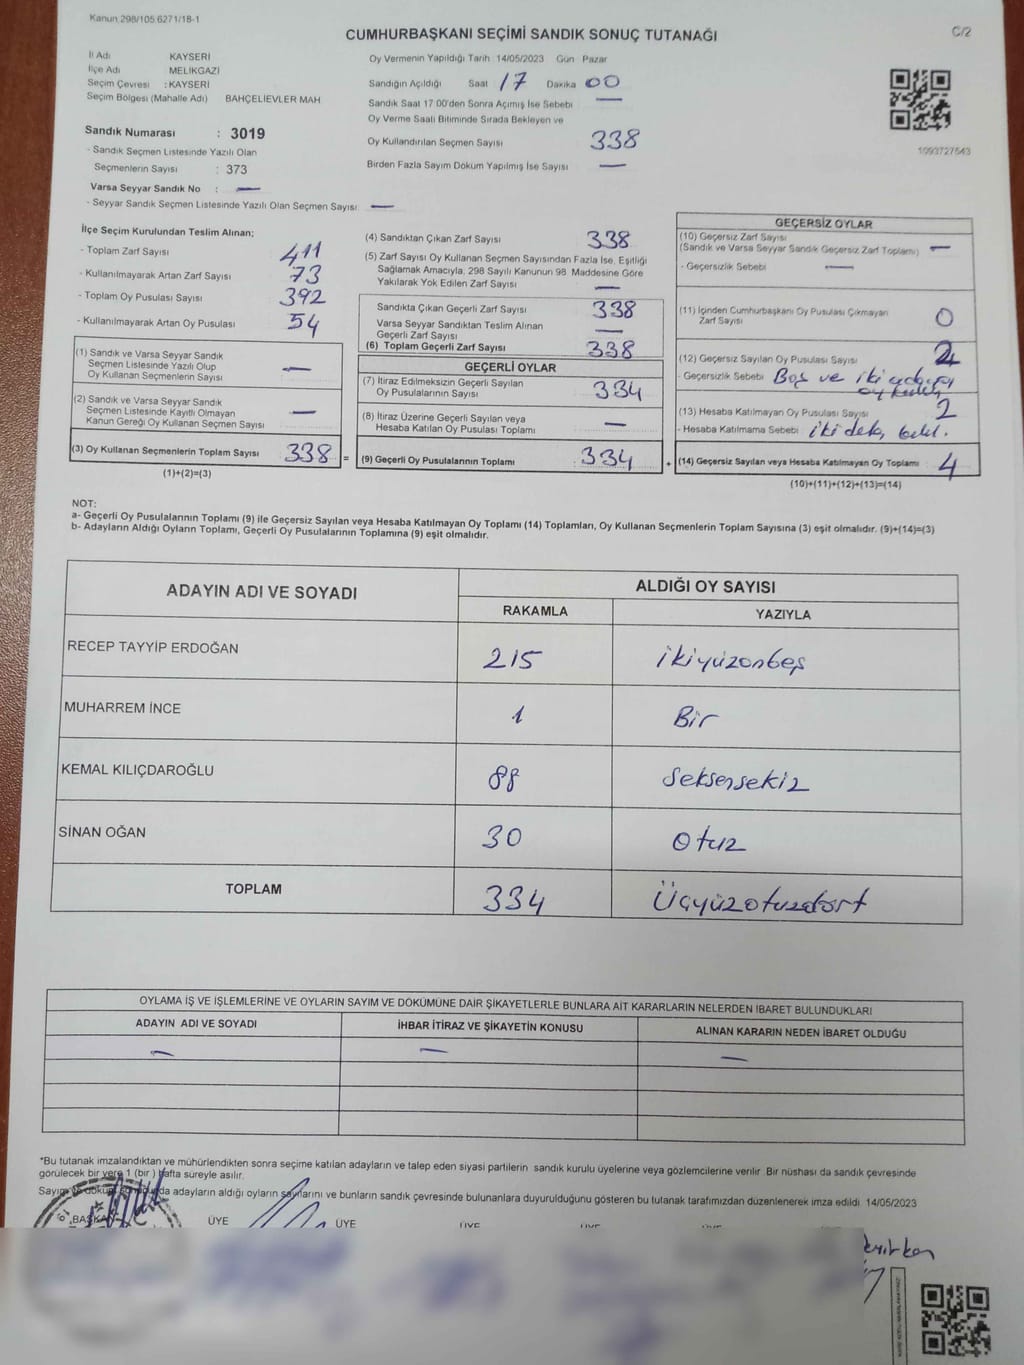 Kanun 298/105 6271/18-1
CUMHURBAŞKANI SEÇİMİ SANDIK SONUÇ TUTANAĞI
C/2
İl Adı KAYSERİ
İlçe Adı MELİKGAZİ
Seçim Çevresi : KAYSERİ
Seçim Bölgesi (Mahalle Adı) BAHÇELİEVLER MAH
Sandık Numarası : 3019
- Sandık Seçmen Listesinde Yazılı Olan
Seçmenlerin Sayısı : 373
Varsa Seyyar Sandık No : —
- Seyyar Sandık Seçmen Listesinde Yazılı Olan Seçmen Sayısı —
Oy Vermenin Yapıldığı Tarih 14/05/2023 Gün Pazar
Sandığın Açıldığı Saat 17 Dakika 00
Sandık Saat 17 00'den Sonra Açımış İse Sebebi —
Oy Verme Saati Bitiminde Sırada Bekleyen ve
Oy Kullandırılan Seçmen Sayısı 338
Birden Fazla Sayım Döküm Yapılmış İse Sayısı —
1093727643
İlçe Seçim Kurulundan Teslim Alınan;
- Toplam Zarf Sayısı 411
- Kullanılmayarak Artan Zarf Sayısı 73
- Toplam Oy Pusulası Sayısı 392
- Kullanılmayarak Artan Oy Pusulası 54
(1) Sandık ve Varsa Seyyar Sandık
Seçmen Listesinde Yazılı Olup
Oy Kullanan Seçmenlerin Sayısı —
(2) Sandık ve Varsa Seyyar Sandık
Seçmen Listesinde Kayıtlı Olmayan
Kanun Gereği Oy Kullanan Seçmen Sayısı —
(3) Oy Kullanan Seçmenlerin Toplam Sayısı 338 =
(1)+(2)=(3)
(4) Sandıktan Çıkan Zarf Sayısı 338
(5) Zarf Sayısı Oy Kullanan Seçmen Sayısından Fazla İse, Eşitliği
Sağlamak Amacıyla, 298 Sayılı Kanunun 98 Maddesine Göre
Yakılarak Yok Edilen Zarf Sayısı —
Sandıkta Çıkan Geçerli Zarf Sayısı 338
Varsa Seyyar Sandıktan Teslim Alınan
Geçerli Zarf Sayısı —
(6) Toplam Geçerli Zarf Sayısı 338
GEÇERLİ OYLAR
(7) İtiraz Edilmeksizin Geçerli Sayılan
Oy Pusulalarının Sayısı 334
(8) İtiraz Üzerine Geçerli Sayılan veya
Hesaba Katılan Oy Pusulası Toplamı —
(9) Geçerli Oy Pusulalarının Toplamı 334 +
GEÇERSİZ OYLAR
(10) Geçersiz Zarf Sayısı
(Sandık ve Varsa Seyyar Sandık Geçersiz Zarf Toplamı) —
- Geçersizlik Sebebi —
(11) İçinden Cumhurbaşkanı Oy Pusulası Çıkmayan
Zarf Sayısı 0
(12) Geçersiz Sayılan Oy Pusulası Sayısı 2
- Geçersizlik Sebebi Boş ve iki
(13) Hesaba Katılmayan Oy Pusulası Sayısı 2
- Hesaba Katılmama Sebebi iki
(14) Geçersiz Sayılan veya Hesaba Katılmayan Oy Toplamı 4
(10)+(11)+(12)+(13)=(14)
NOT:
a- Geçerli Oy Pusulalarının Toplamı (9) ile Geçersiz Sayılan veya Hesaba Katılmayan Oy Toplamı (14) Toplamları, Oy Kullanan Seçmenlerin Toplam Sayısına (3) eşit olmalıdır. (9)+(14)=(3)
b- Adayların Aldığı Oyların Toplamı, Geçerli Oy Pusulalarının Toplamına (9) eşit olmalıdır.
ADAYIN ADI VE SOYADI
ALDIĞI OY SAYISI
RAKAMLA YAZIYLA
RECEP TAYYİP ERDOĞAN 215 ikiyüzonbeş
MUHARREM İNCE 1 Bir
KEMAL KILIÇDAROĞLU 88 Seksensekiz
SİNAN OĞAN 30 Otuz
TOPLAM 334 Üçyüzotuzdört
OYLAMA İŞ VE İŞLEMLERİNE VE OYLARIN SAYIM VE DÖKÜMÜNE DAİR ŞİKAYETLERLE BUNLARA AİT KARARLARIN NELERDEN İBARET BULUNDUKLARI
ADAYIN ADI VE SOYADI İHBAR İTİRAZ VE ŞİKAYETİN KONUSU ALINAN KARARIN NEDEN İBARET OLDUĞU
— — —
*Bu tutanak imzalandıktan ve mühürlendikten sonra seçime katılan adayların ve talep eden siyasi partilerin sandık kurulu üyelerine veya gözlemcilerine verilir. Bir nüshası da sandık çevresinde
görülecek bir yere 1 (bir) hafta süreyle asılır.
Sayım ve döküm adayların aldığı oyların sayılarını ve bunların sandık çevresinde bulunanlara duyurulduğunu gösteren bu tutanak tarafımızdan düzenlenerek imza edildi 14/05/2023
BAŞKAN ÜYE ÜYE ÜYE ÜYE ÜYE